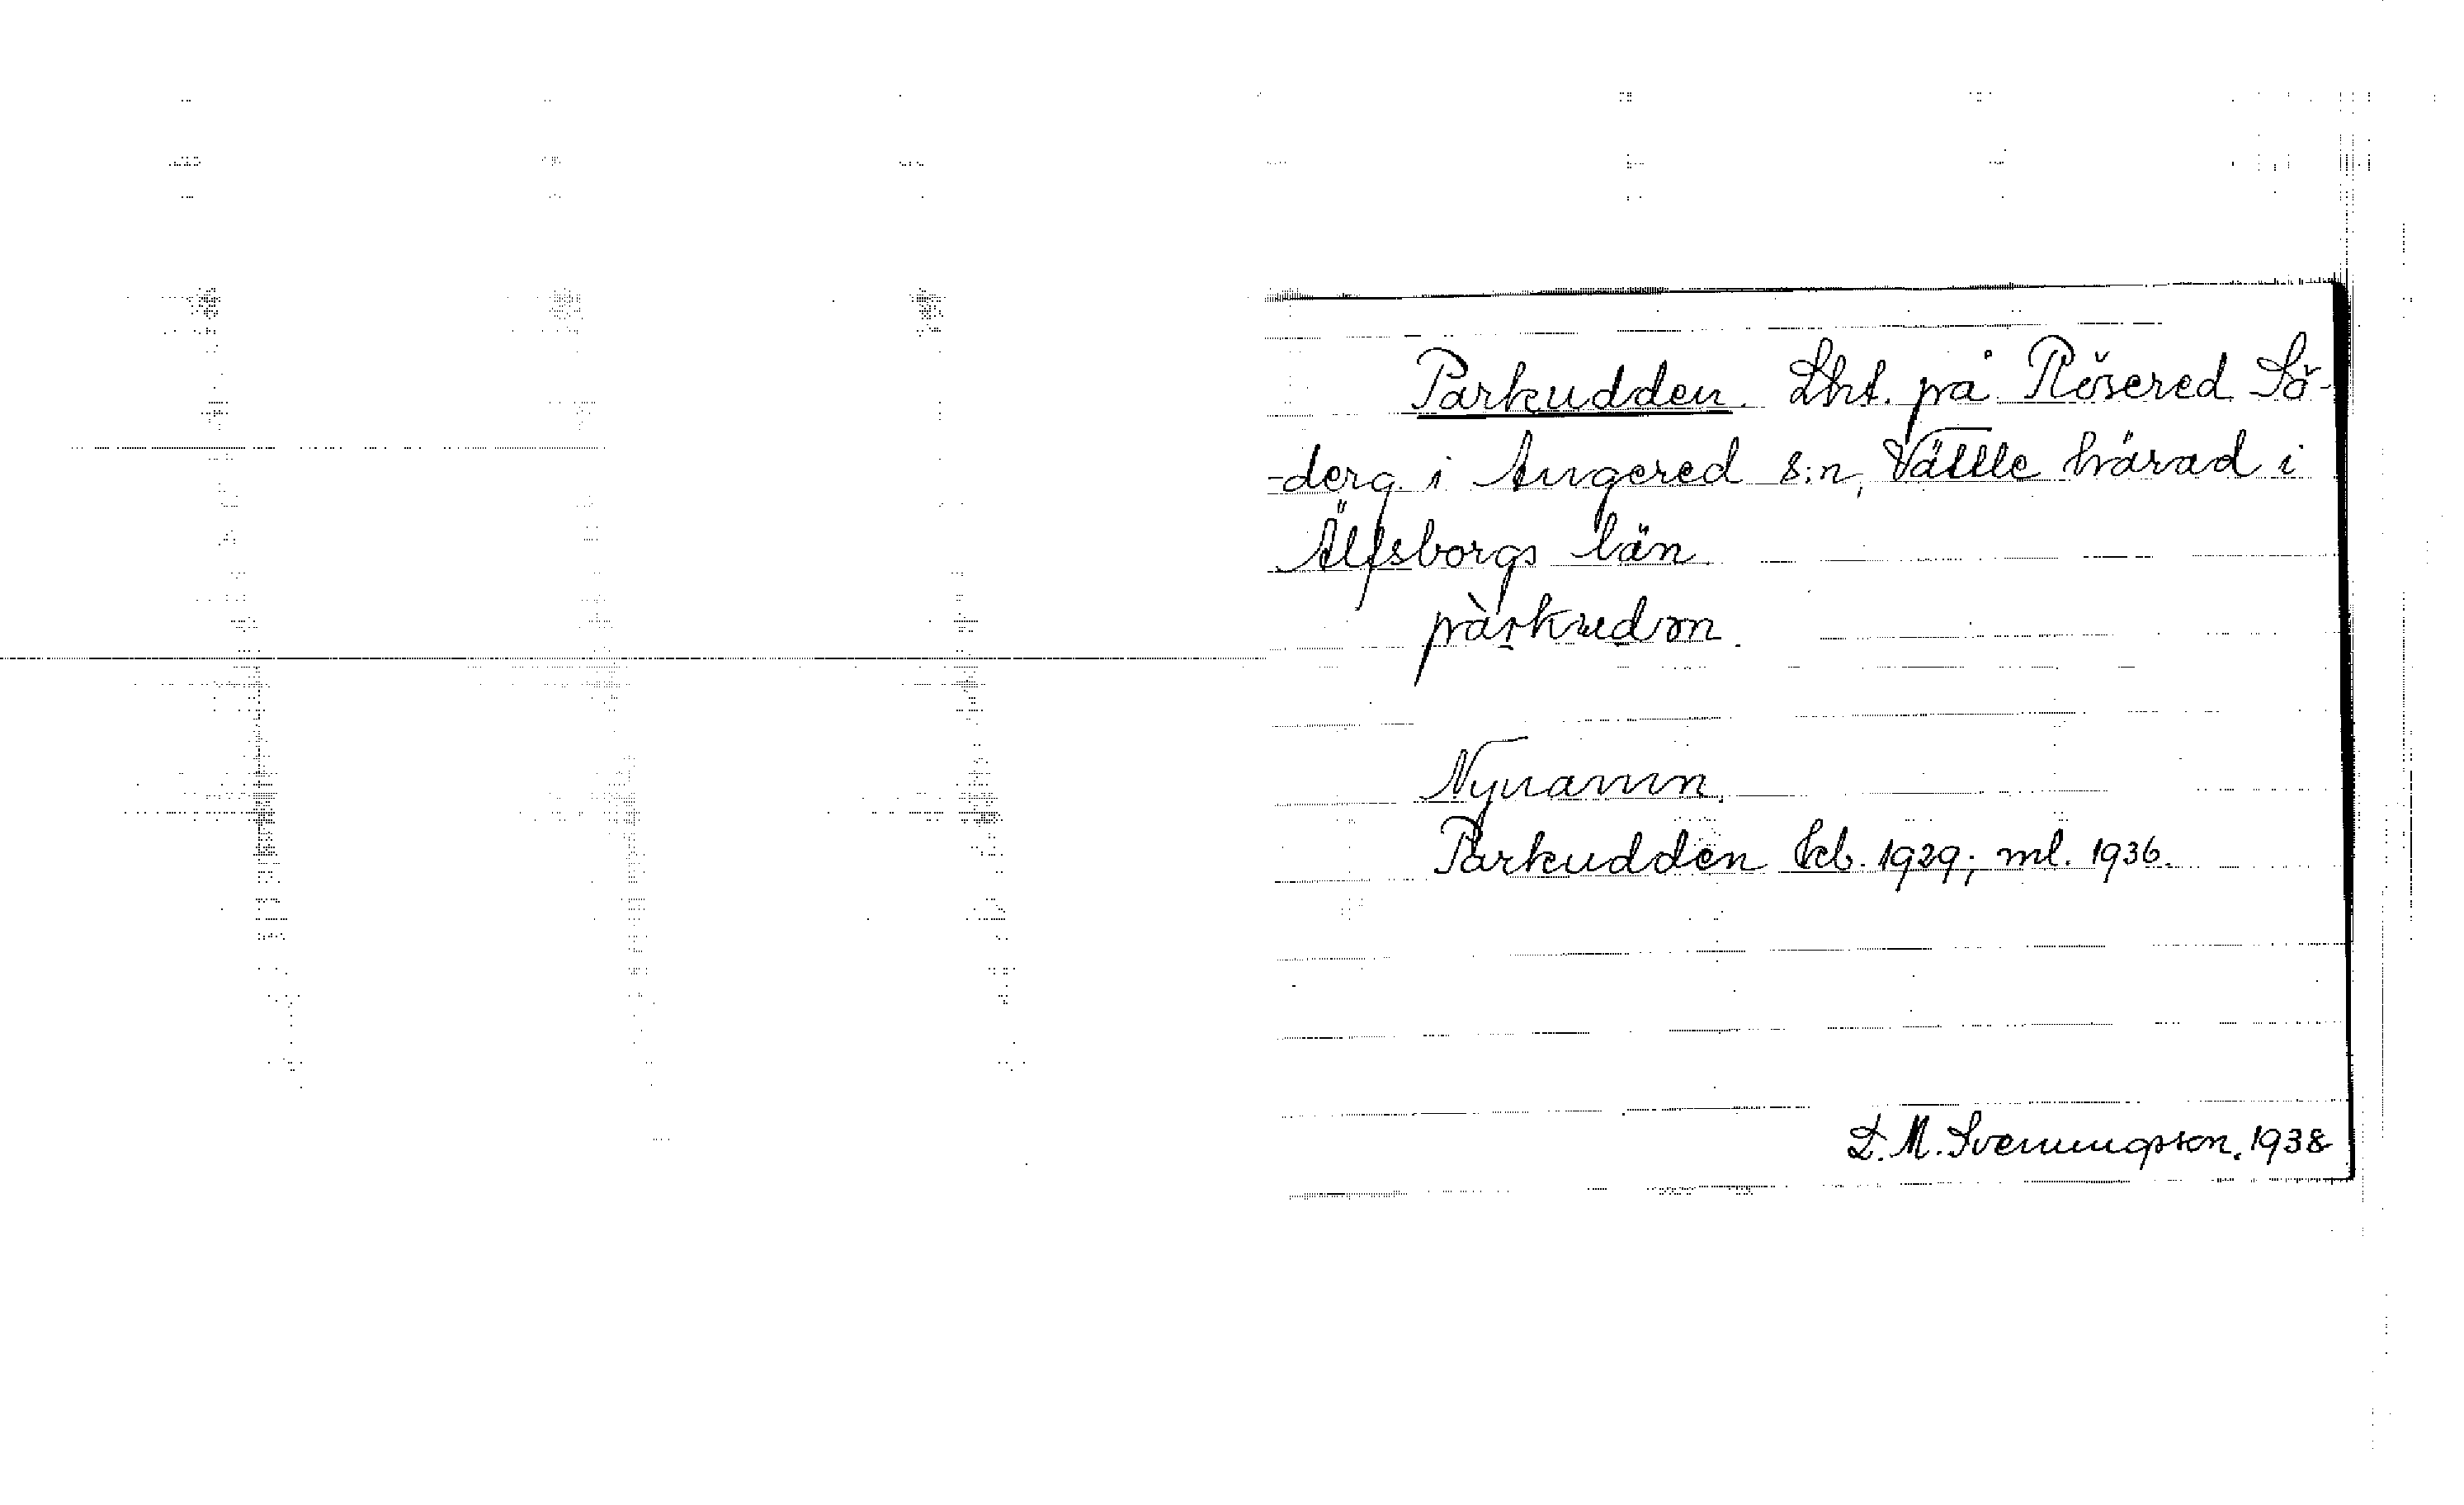 Parkudden. Lht. på Rösered Sö-
-derg. i Angered s:n, Vättle härad i
Älfsborgs län.
pàrkudən.
Nynamn.
Parkudden kb. 1929; ml. 1936.
D. M. Svenningsson. 1938